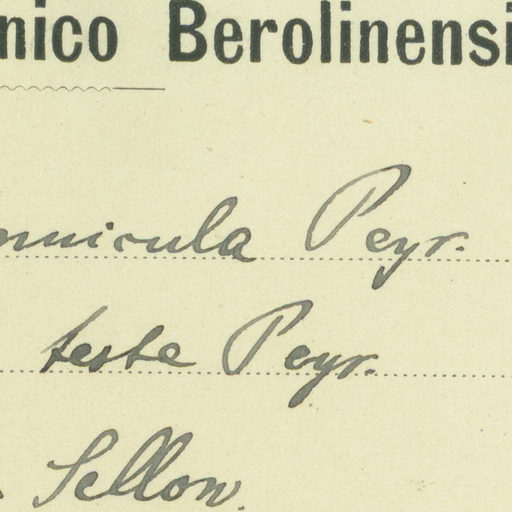 nico Berolinensi
nnicula Peyr.
teste Peyr.
Sellow.